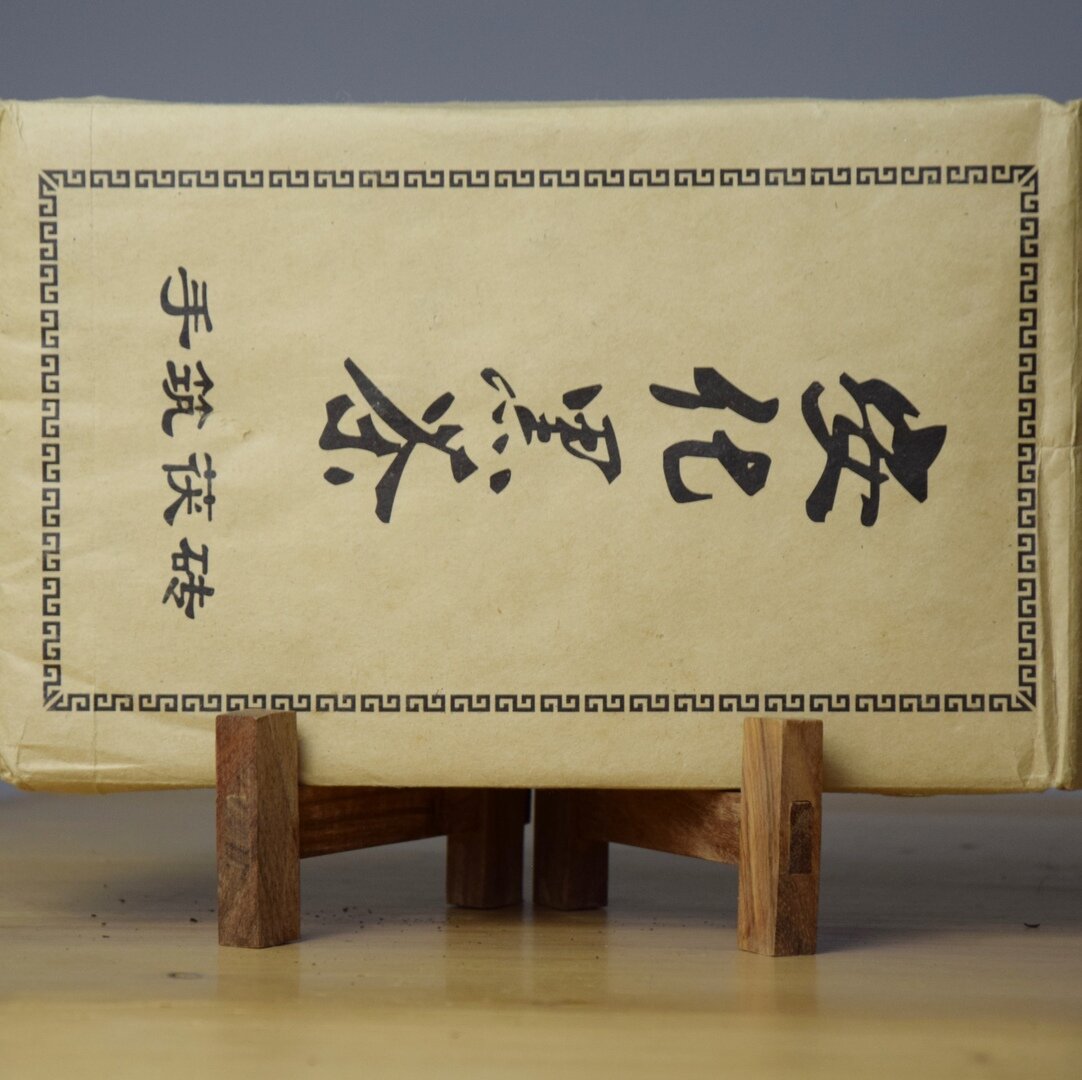 安化黑茶
手筑茯砖